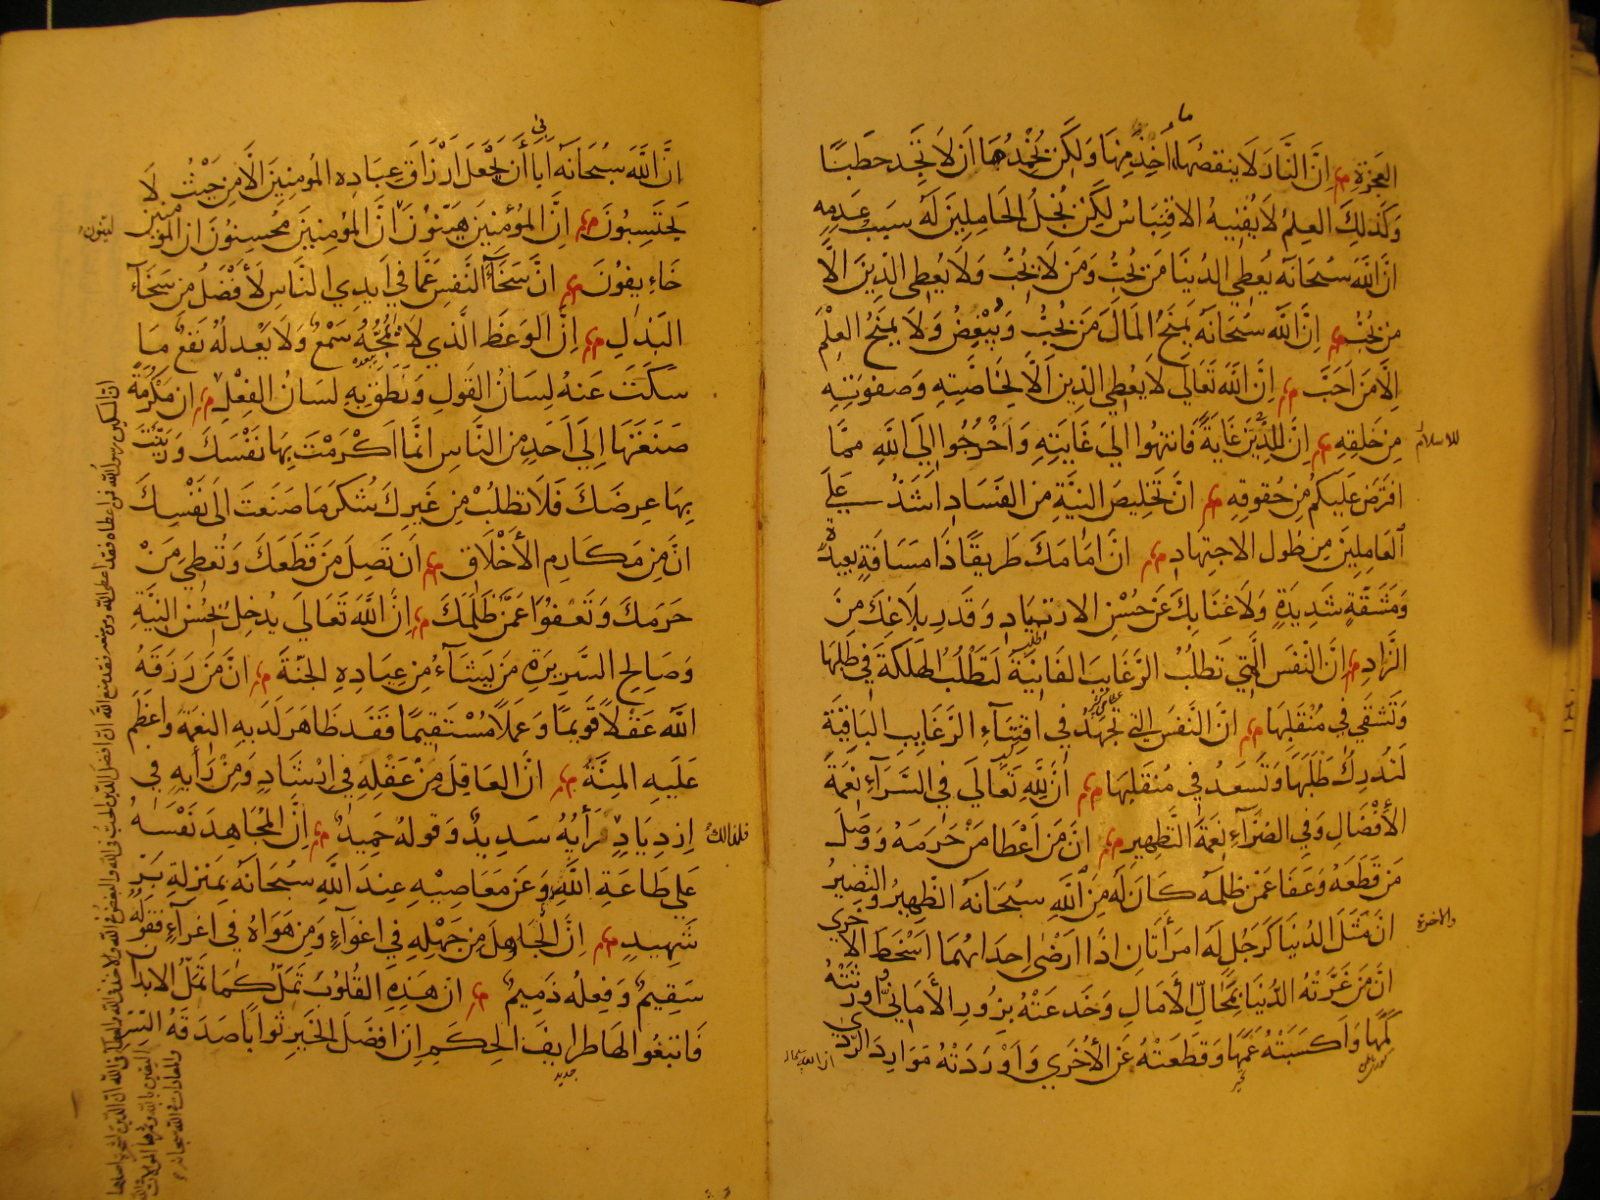 العجزة ان النار لا ينقصها ما اخذ منها ولكن يخمدها ان لا تجد حطبا
وكذلك العلم لا يفنيه الاقتباس لكن بخل الحاملين له سبب عدمه
ان الله سبحانه يعطي الدنيا من يحب ومن لا يحب ولا يعطي الدين الا
من يحب ان الله سبحانه يمنح المال من يحب ويبغض ولا يمنح العلم
الا من احب ان الله تعالى لا يعطي الدين الا لخاصته وصفوته
من خلقه ان للدين غاية فانتهوا الى غايته واخرجوا الى الله مما
للاسلام
افترض عليكم من حقوقه ان تخليص النية من الفساد اشد على
العاملين من طول الاجتهاد ان امامك طريقا ذا مسافة بعيدة
ومشقة شديدة ولا غنا بك عن حسن الارتياد وقدر بلاغك من
الزاد ان النفس التي تطلب الرغايب الفانية لتطلب الهلكة في طلبها
وتشقي في منقلبها ان النفس التي تجهد في اقتناء الرغايب الباقية
لتدرك طلبها وتسعد في منقلبها ان لله تعالى في السراء نعمة
الافضال وفي الضراء نعمة التطهير ان من اعطا من حرمه ووصل
من قطعه وعفا عمن ظلمه كان له من الله سبحانه الظهير والنصير
ان مثل الدنيا والاخرة كرجل له امرأتان اذا ارضى احداهما اسخط الاخرى
ان من غرته الدنيا بمحال الآمال وخدعته بزور الأماني اورثته
كمها واكسبته عمها وقطعته عن الأخرى واوردته موارد الردي
ان الله سبحانه
ان الله سبحانه أبا أن يجعل ارزاق عباده المومنين الا من حيث لا
يحتسبون ان المؤمنين هينون لينون ان المؤمنين محسنون ان المؤمنين
خاءيفون ان سخاء النفس عما في ايدي الناس لأفضل من سخآء
البذل ان الوعظ الذي لا يمجه سمع ولا يعدله نفع ما
سكت عنه لسان القول ونطق به لسان الفعل ان مكرمة
صنعتها الى احد من الناس انما اكرمت بها نفسك وزينت
بها عرضك فلا تطلب من غيرك شكر ما صنعت الى نفسك
ان من مكارم الأخلاق ان تصل من قطعك وتعطي من
حرمك وتعفوا عمن ظلمك ان الله تعالى يدخل بحسن النية
وصالح السريرة من يشاء من عباده الجنة ان من رزقه
الله عقلا قويما وعملا مستقيما فقد ظاهر لديه النعمة واعظم
عليه المنة ان العاقل من عقله في ارشاد ومن رأيه في
ازدياد فلذالك رأيه سديد وقوله حميد ان المجاهد نفسه
على طاعة الله وعن معاصيه عند الله سبحانه بمنزلة بر
شهيد ان الجاهل من جهله في اغواء ومن هواه في اغراء فقوله
سقيم وفعله ذميم ان هذه القلوب تمل كما تمل الابدان
فابتغوا لها طرايف الحكم ان افضل الخير ثوابا صدقة السر
جديد
ان المسكين رسول الله فمن اعطاه فقد اعطى الله ومن منعه فقد منع الله ان افضل الدين الحب في الله والبغض في الله والاخذ في الله والعطا في الله